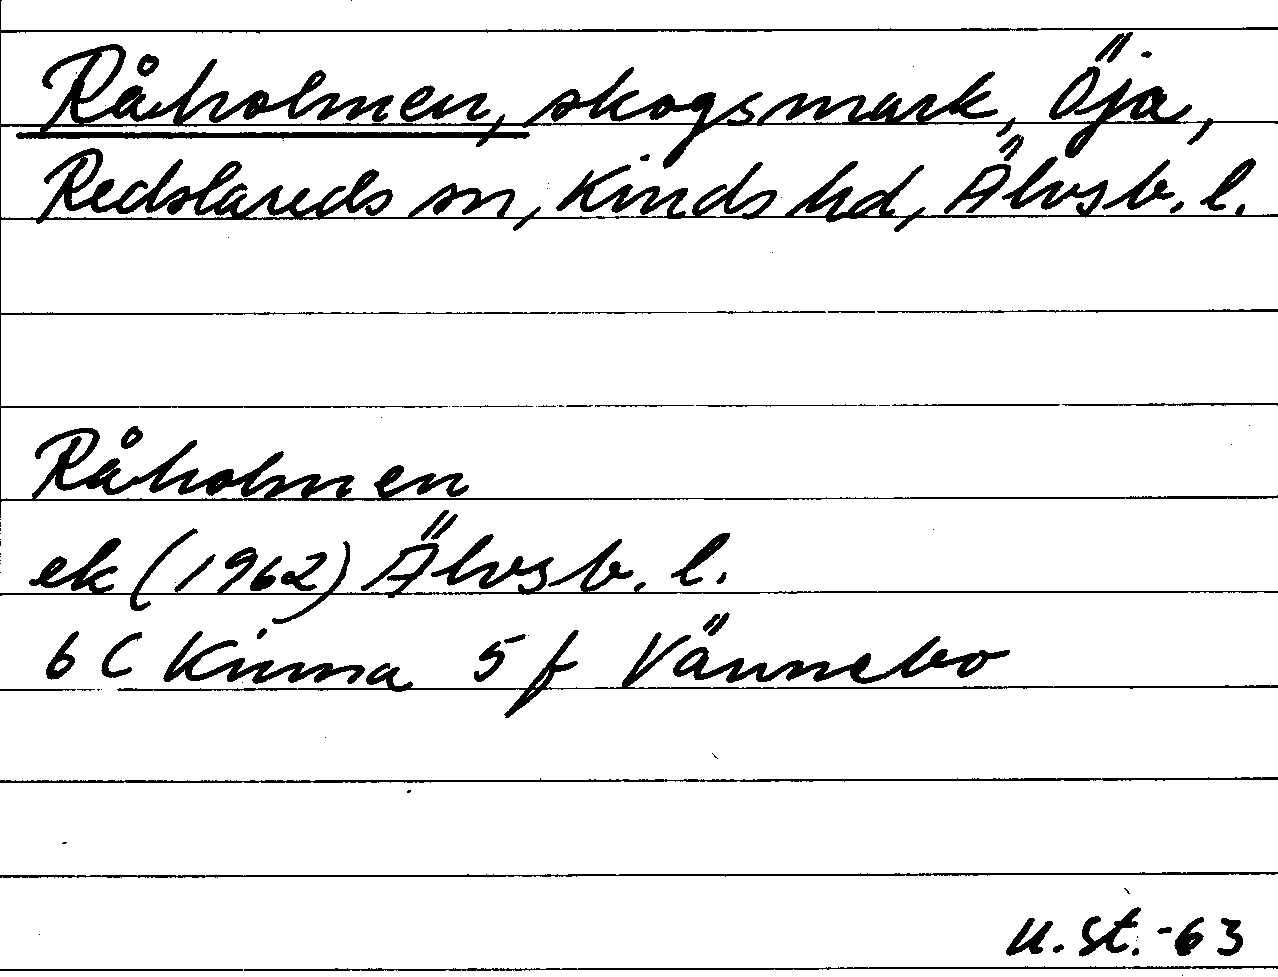 Råholmen, skogsmark, Öja,
Redslareds sn, Kinds hd, Älvsb. l.
Råholmen
ek (1962) Älvsb. l.
6 C Kinna 5 f Vännebo
U. St. -63